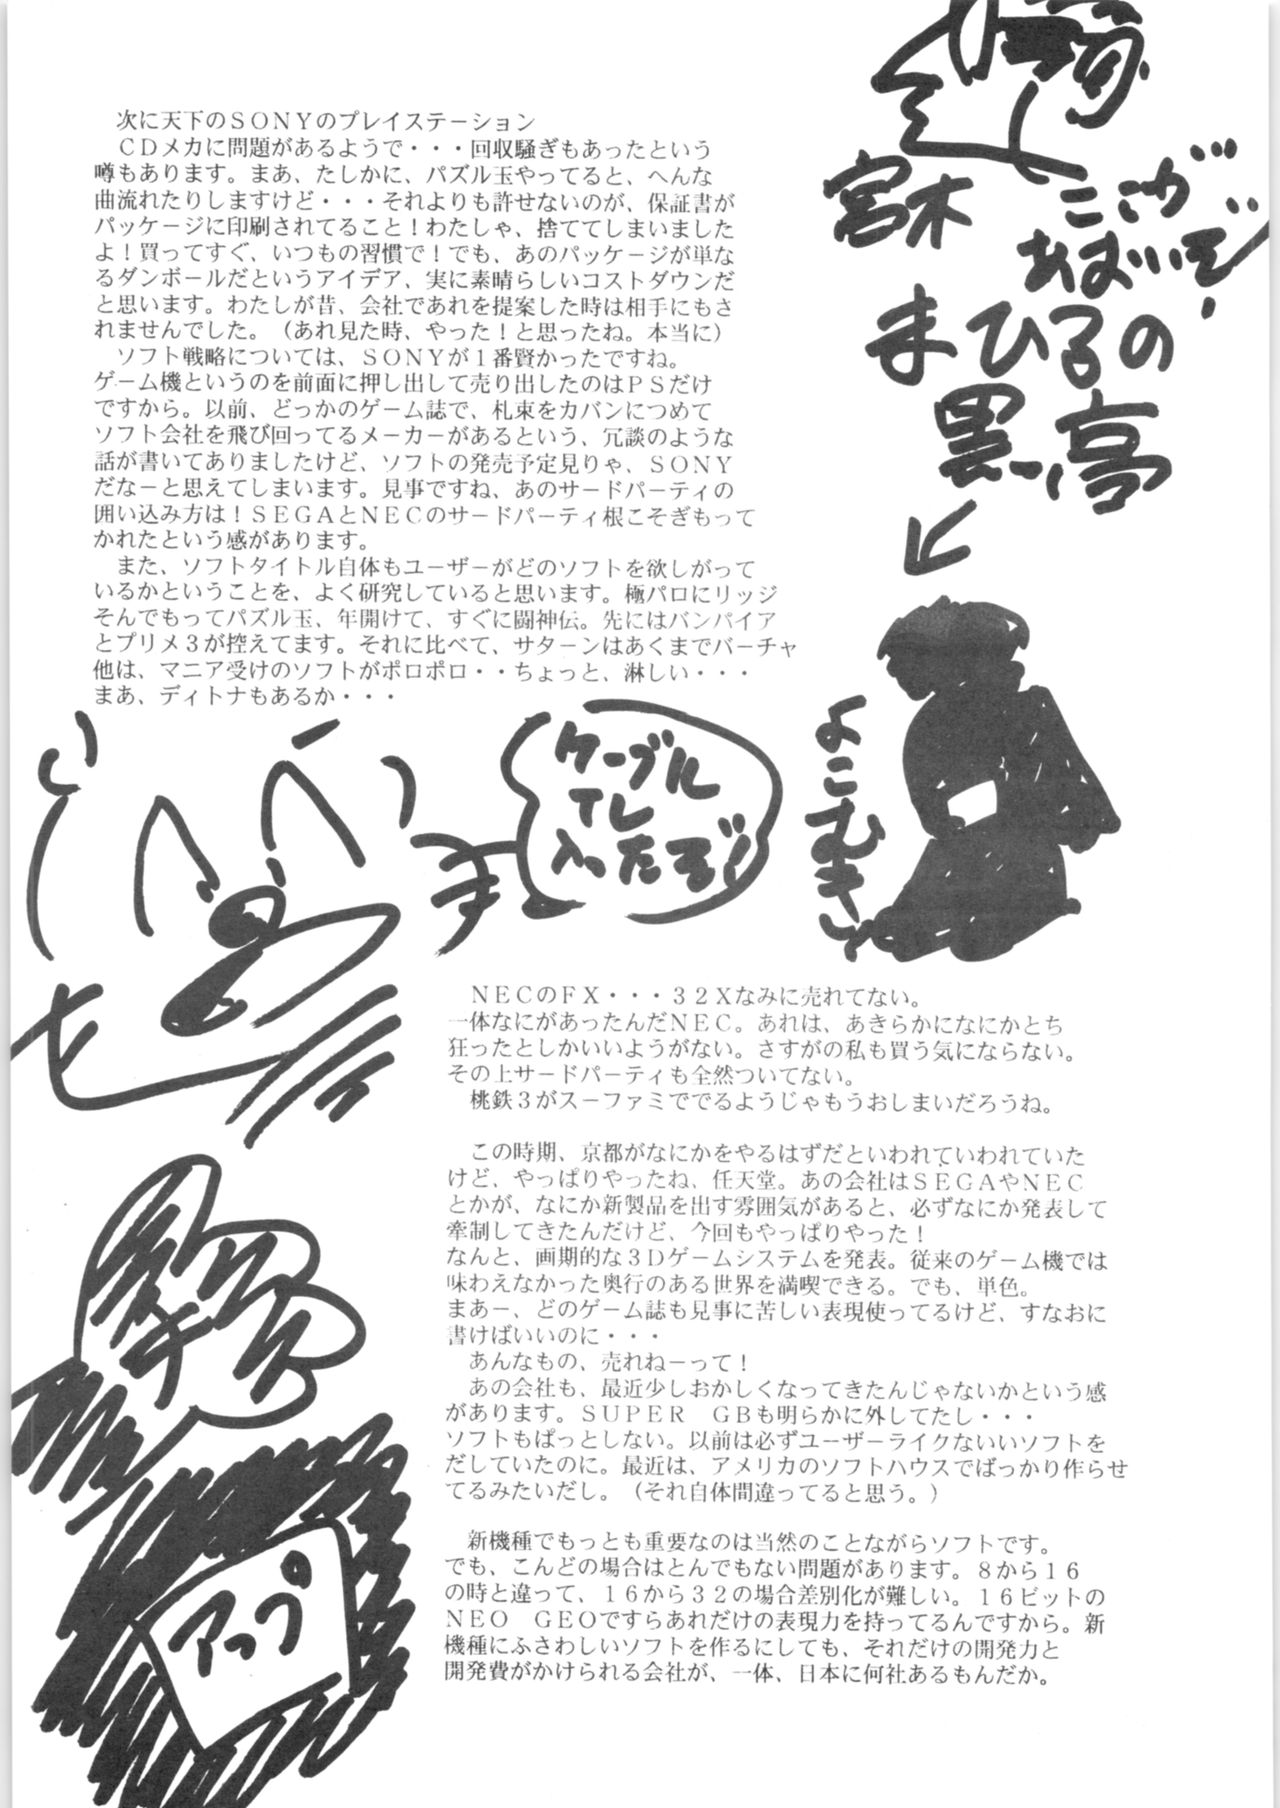 次に天下のＳＯＮＹのプレイステーション
ＣＤメカに問題があるようで・・・回収騒ぎもあったという
噂もあります。まあ、たしかに、パズル玉やってると、へんな
曲流れたりしますけど・・・それよりも許せないのが、保証書が
パッケージに印刷されてること！わたしゃ、捨ててしまいました
よ！買ってすぐ、いつもの習慣で！でも、あのパッケージが単な
るダンボールだというアイデア、実に素晴らしいコストダウンだ
と思います。わたしが昔、会社であれを提案した時は相手にもさ
れませんでした。（あれ見た時、やった！と思ったね。本当に）
ソフト戦略については、ＳＯＮＹが１番賢かったですね。
ゲーム機というのを前面に押し出して売り出したのはＰＳだけ
ですから。以前、どっかのゲーム誌で、札束をカバンにつめて
ソフト会社を飛び回ってるメーカーがあるという、冗談のような
話が書いてありましたけど、ソフトの発売予定見りゃ、ＳＯＮＹ
だなーと思えてしまいます。見事ですね、あのサードパーティの
囲い込み方は！ＳＥＧＡとＮＥＣのサードパーティ根こそぎもって
かれたという感があります。
また、ソフトタイトル自体もユーザーがどのソフトを欲しがって
いるかということを、よく研究していると思います。極パロにリッジ
そんでもってパズル玉、年開けて、すぐに闘神伝。先にはバンパイア
とプリメ３が控えてます。それに比べて、サターンはあくまでバーチャ
他は、マニア受けのソフトがポロポロ・・ちょっと、淋しい・・・
まあ、ディトナもあるか・・・
宮木
ここが
あまいぞ！
まひるの
黒い亭
よこむき
ケーブル
TV
入ったぞ！
ＮＥＣのＦＸ・・・３２Ｘなみに売れてない。
一体なにがあったんだＮＥＣ。あれは、あきらかになにかとち
狂ったとしかいいようがない。さすがの私も買う気にならない。
その上サードパーティも全然ついてない。
桃鉄３がスーファミででるようじゃもうおしまいだろうね。
この時期、京都がなにかをやるはずだといわれていわれていた
けど、やっぱりやったね、任天堂。あの会社はＳＥＧＡやＮＥＣ
とかが、なにか新製品を出す雰囲気があると、必ずなにか発表して
牽制してきたんだけど、今回もやっぱりやった！
なんと、画期的な３Ｄゲームシステムを発表。従来のゲーム機では
味わえなかった奥行のある世界を満喫できる。でも、単色。
まあー、どのゲーム誌も見事に苦しい表現使ってるけど、すなおに
書けばいいのに・・・
あんなもの、売れねーって！
あの会社も、最近少しおかしくなってきたんじゃないかという感
があります。ＳＵＰＥＲ　ＧＢも明らかに外してたし・・・
ソフトもぱっとしない。以前は必ずユーザーライクないいソフトを
だしていたのに。最近は、アメリカのソフトハウスでばっかり作らせ
てるみたいだし。（それ自体間違ってると思う。）
新機種でもっとも重要なのは当然のことながらソフトです。
でも、こんどの場合はとんでもない問題があります。８から１６
の時と違って、１６から３２の場合差別化が難しい。１６ビットの
ＮＥＯ　ＧＥＯですらあれだけの表現力を持ってるんですから。新
機種にふさわしいソフトを作るにしても、それだけの開発力と
開発費がかけられる会社が、一体、日本に何社あるもんだか。
アップ